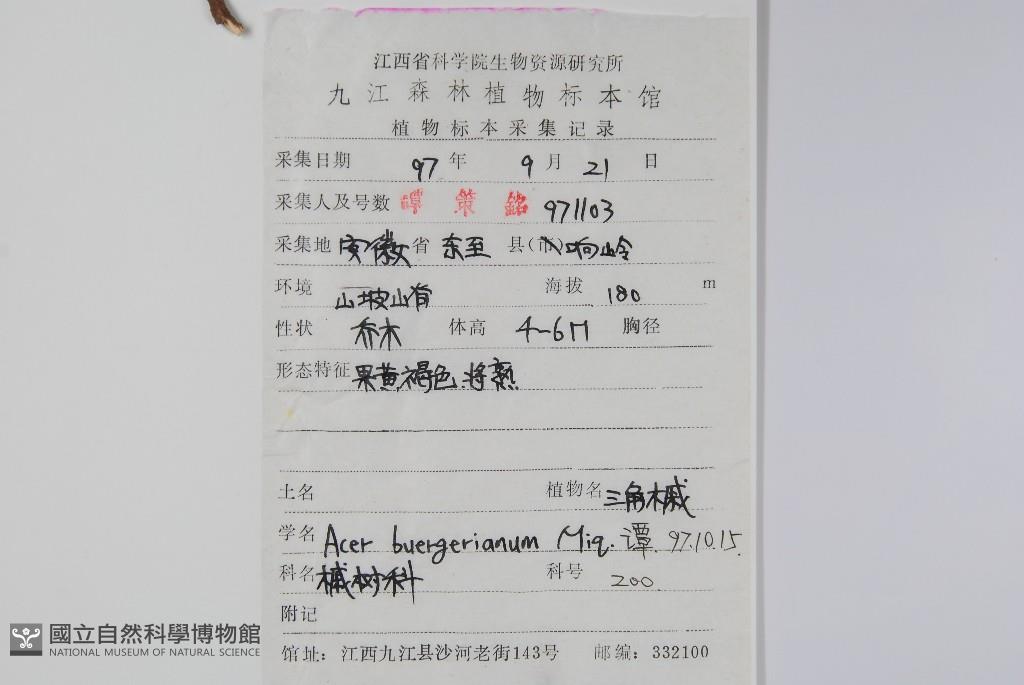 江西省科学院生物资源研究所
九江森林植物标本馆
植物标本采集记录
采集日期 97 年 9 月 21 日
采集人及号数 譚策銘 971103
采集地 安徽 省 东至 县(市) 响岭
环境 山坡山脊 海拔 180 m
性状 乔木 体高 4~6M 胸径
形态特征 果黄褐色.将熟
土名 植物名 三角槭
学名 Acer buergerianum Miq. 谭. 97.10.15.
科名 槭树科 科号 200.
附记
馆址: 江西九江县沙河老街143号 邮编: 332100
國立自然科學博物館
NATIONAL MUSEUM OF NATURAL SCIENCE